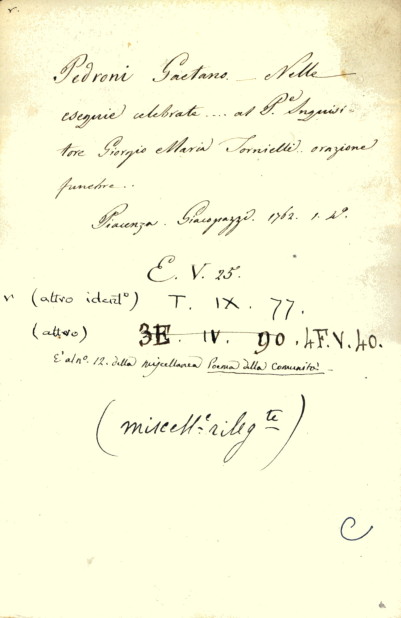 v.
Pedroni Gaetano. — Nelle
esequie celebrate .... al P.e Inquisi-
tore Giorgio Maria Tornielli.. orazione
funebre..
Piacenza. Giacopazzi. 1762. in 4°.
E. V. 25.
v. (altro ident°) T. IX. 77.
(altro) 3E. IV. 90. 4F.V.40.
E' al n°. 12. della miscellanea Poema della Comunità
(miscell.e rileg.te)
C